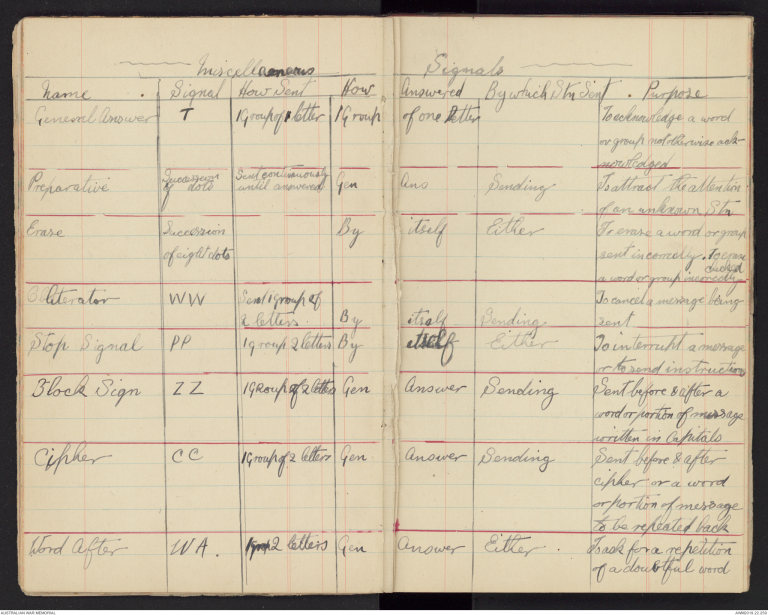 Miscellaneous Signals
Name . Signal How Sent How Answered By which Stn Sent . Purpose
General Answer T 1 Group of 1 letter 1 Group of one letter To acknowledge a word
or group not otherwise ack-
nowledged
Preparative Succession of dots Sent continuously until answered Gen Ans Sending To attract the attention
of an unknown Stn
Erase Succession By itself Either To erase a word or group
of eight dots sent incorrectly. To erase
a word or group incorrectly
Obliterator WW Sent 1 group of To cancel a message being
2 letters. By itself Sending sent
Stop Signal PP 1 group 2 letters By itself Either To interrupt a message
or to send instructions
Block Sign ZZ 1 Group of 2 letters Gen Answer Sending Sent before & after a
word or portion of message
written in Capitals
Cipher CC 1 Group of 2 letters Gen Answer Sending Sent before & after
cipher or a word
or portion of message
to be repeated back
Word After WA. 2 letters Gen Answer Either . To ask for a repetition
of a doubtful word
AUSTRALIAN WAR MEMORIAL